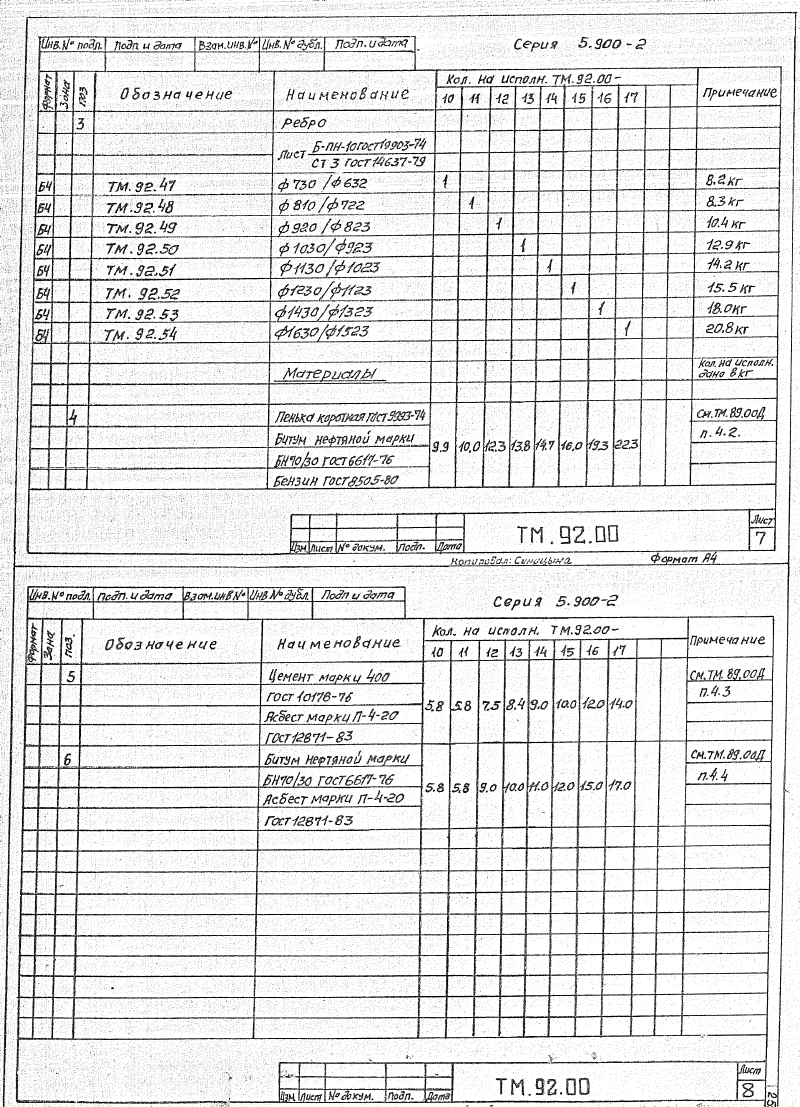 Инв.№ подл. Подп. и дата Взам.инв.№ Инв.№ дубл. Подп. и дата Серия 5.900-2
Формат Зона Поз Обозначение Наименование Кол. на исполн. ТМ.92.00- Примечание
10 11 12 13 14 15 16 17
3 Ребро
Лист Б-ПН-10 ГОСТ 19903-74
СТ 3 ГОСТ 14637-79
БЧ ТМ.92.47 ф730/ф632 1 8.2 кг
БЧ ТМ.92.48 ф810/ф722 1 8.3 кг
БЧ ТМ.92.49 ф920/ф823 1 10.4 кг
БЧ ТМ.92.50 ф1030/ф923 1 12.9 кг
БЧ ТМ.92.51 ф1130/ф1023 1 14.2 кг
БЧ ТМ.92.52 ф1230/ф1123 1 15.5 кг
БЧ ТМ.92.53 ф1430/ф1323 1 18.0 кг
БЧ ТМ.92.54 ф1630/ф1523 1 20,8 кг
Материалы Кол. на исполн.
дано в кг
4 Пенька короткая ГОСТ 9993-74 См.ТМ.89.00Д
Битум нефтяной марки 9.9 10,0 12.3 13.8 14.7 16,0 19.3 22.3 п.4.2.
БН 90/30 ГОСТ 6617-76
Бензин ГОСТ 8505-80
Изм Лист № докум. Подп. Дата ТМ.92.00 Лист
7
Копировал: Синицына Формат А4
Инв.№ подл. Подп. и дата Взам.инв№ Инв№ дубл. Подп и дата Серия 5.900-2
Формат Зона Поз. Обозначение Наименование Кол. на исполн. ТМ.92.00- Примечание
10 11 12 13 14 15 16 17
5 Цемент марки 400 См.ТМ.89.00Д
ГОСТ 10178-76 5.8 5.8 7.5 8.4 9.0 10.0 12.0 14.0 п.4.3
Асбест марки П-4-20
ГОСТ 12871-83
6 Битум нефтяной марки См.ТМ.89.00Д
БН 90/30 ГОСТ 6617-76 5.8 5.8 9.0 10.0 11.0 12.0 15.0 17.0 п.4.4
Асбест марки П-4-20
ГОСТ 12871-83
Изм Лист № докум. Подп. Дата ТМ.92.00 Лист
8
25